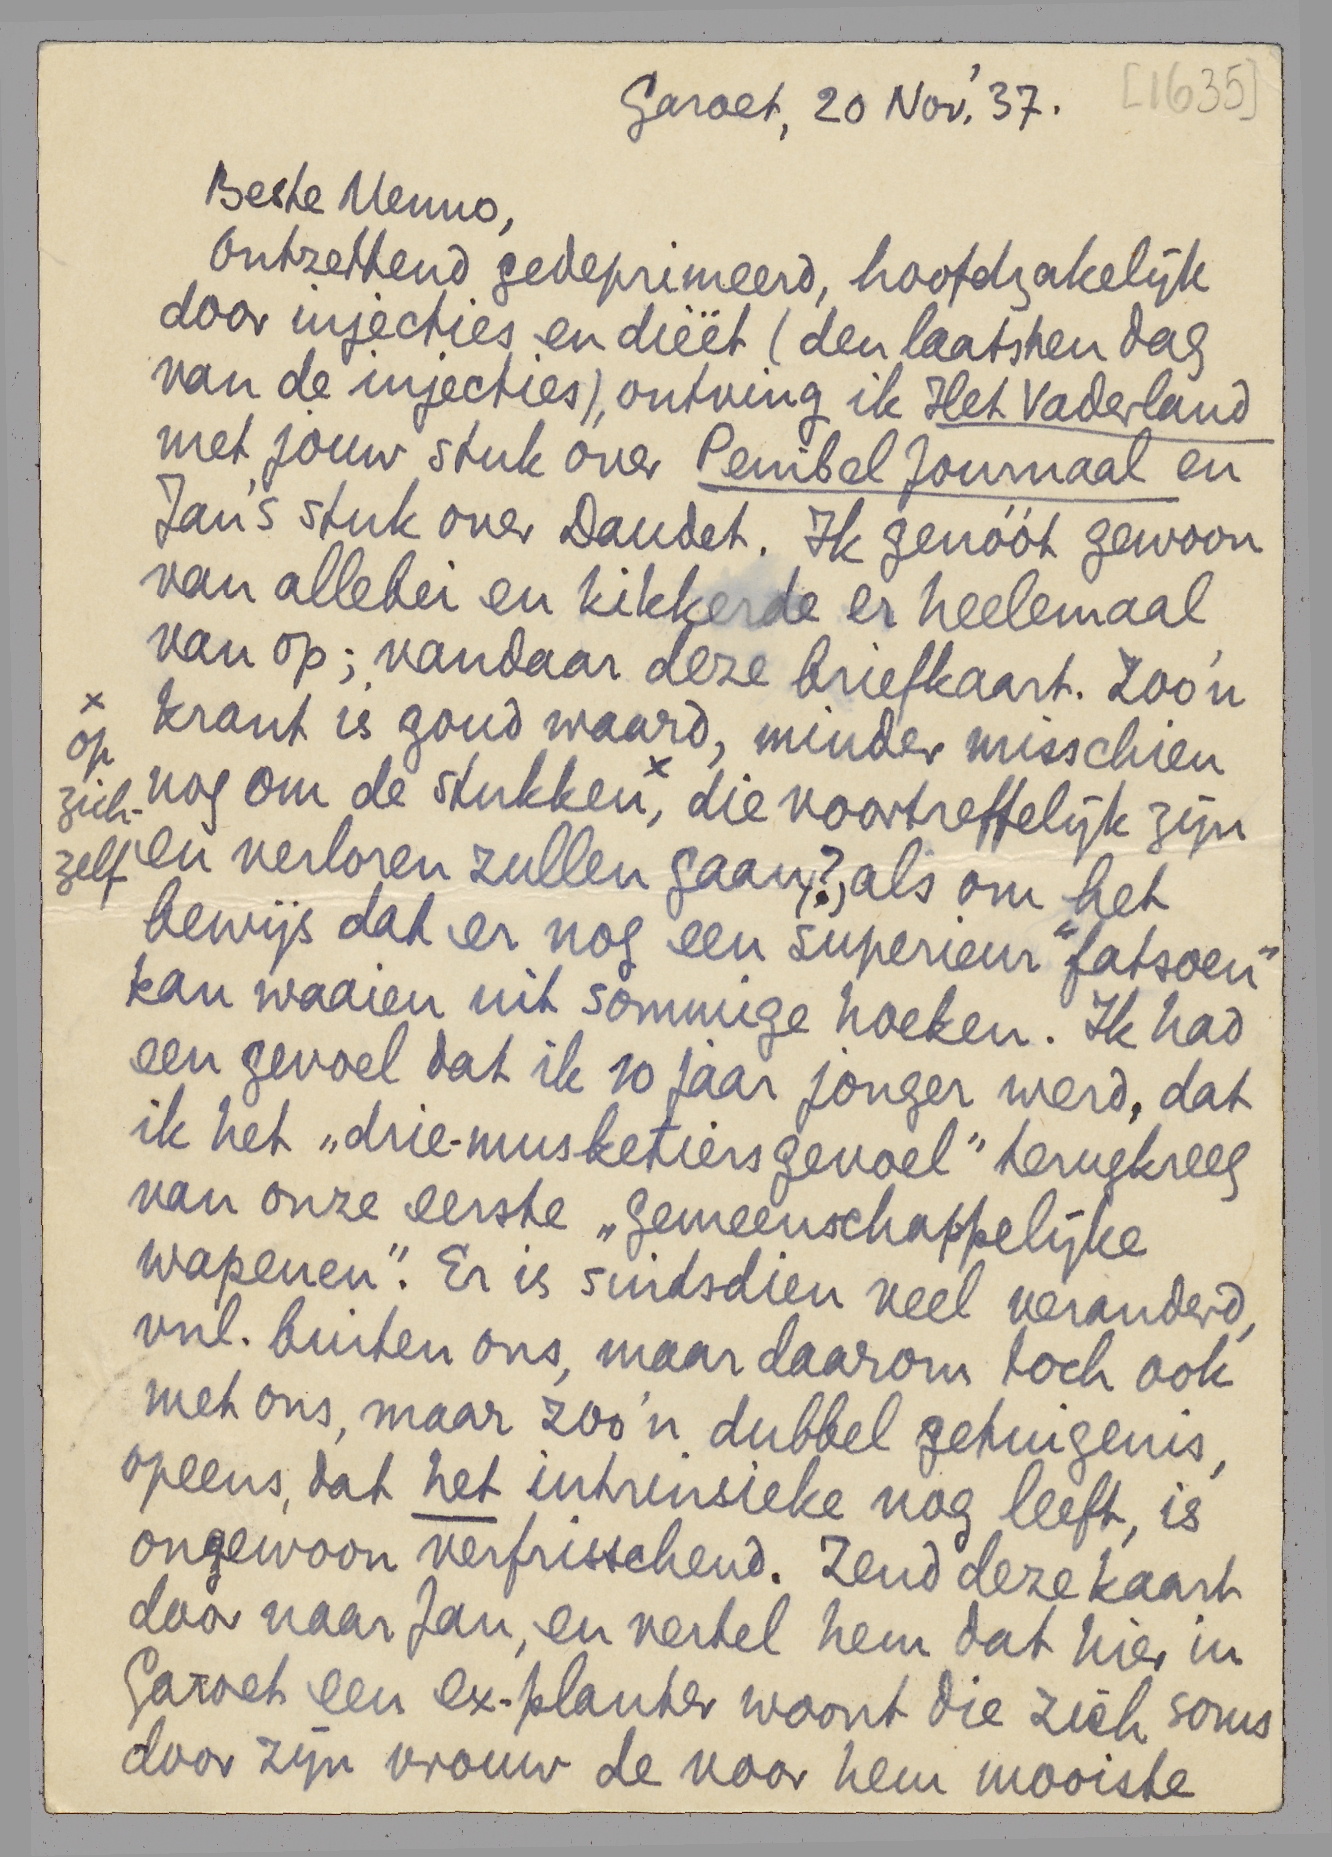 Garoet, 20 Nov. '37.
[1635]
Beste Menno,
Ontzettend gedeprimeerd, hoofdzakelijk
door injecties en dieët (den laatsten dag
van de injecties), ontving ik Het Vaderland
met jouw stuk over Penibel Journaal en
Jan's stuk over Daudet. Ik genóót gewoon
van allebei en kikkerde er heelemaal
van op; vandaar deze briefkaart. Zoo'n
krant is goud waard, minder misschien
nog om de stukken ×, die voortreffelijk zijn
en verloren zullen gaan (?), als om het
bewijs dat er nog een superieur "fatsoen"
kan waaien uit sommige hoeken. Ik had
een gevoel dat ik 10 jaar jonger werd, dat
ik het „drie-musketiersgevoel" terugkreeg
van onze eerste „gemeenschappelijke
wapenen". Er is sindsdien veel veranderd,
vnl. buiten ons, maar daarom toch ook
met ons, maar zoo'n dubbel getuigenis,
opeens, dat het intrinsieke nog leeft, is
ongewoon verfrisschend. Zend deze kaart
door naar Jan, en vertel hem dat hier in
Garoet een ex-planter woont die zich soms
door zijn vrouw de voor hem mooiste
×
op
zich-
zelf